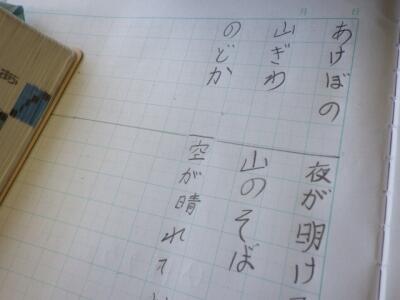 月 日
あけぼの
夜が明け
山ぎわ
山のそば
のどか
空が晴れて